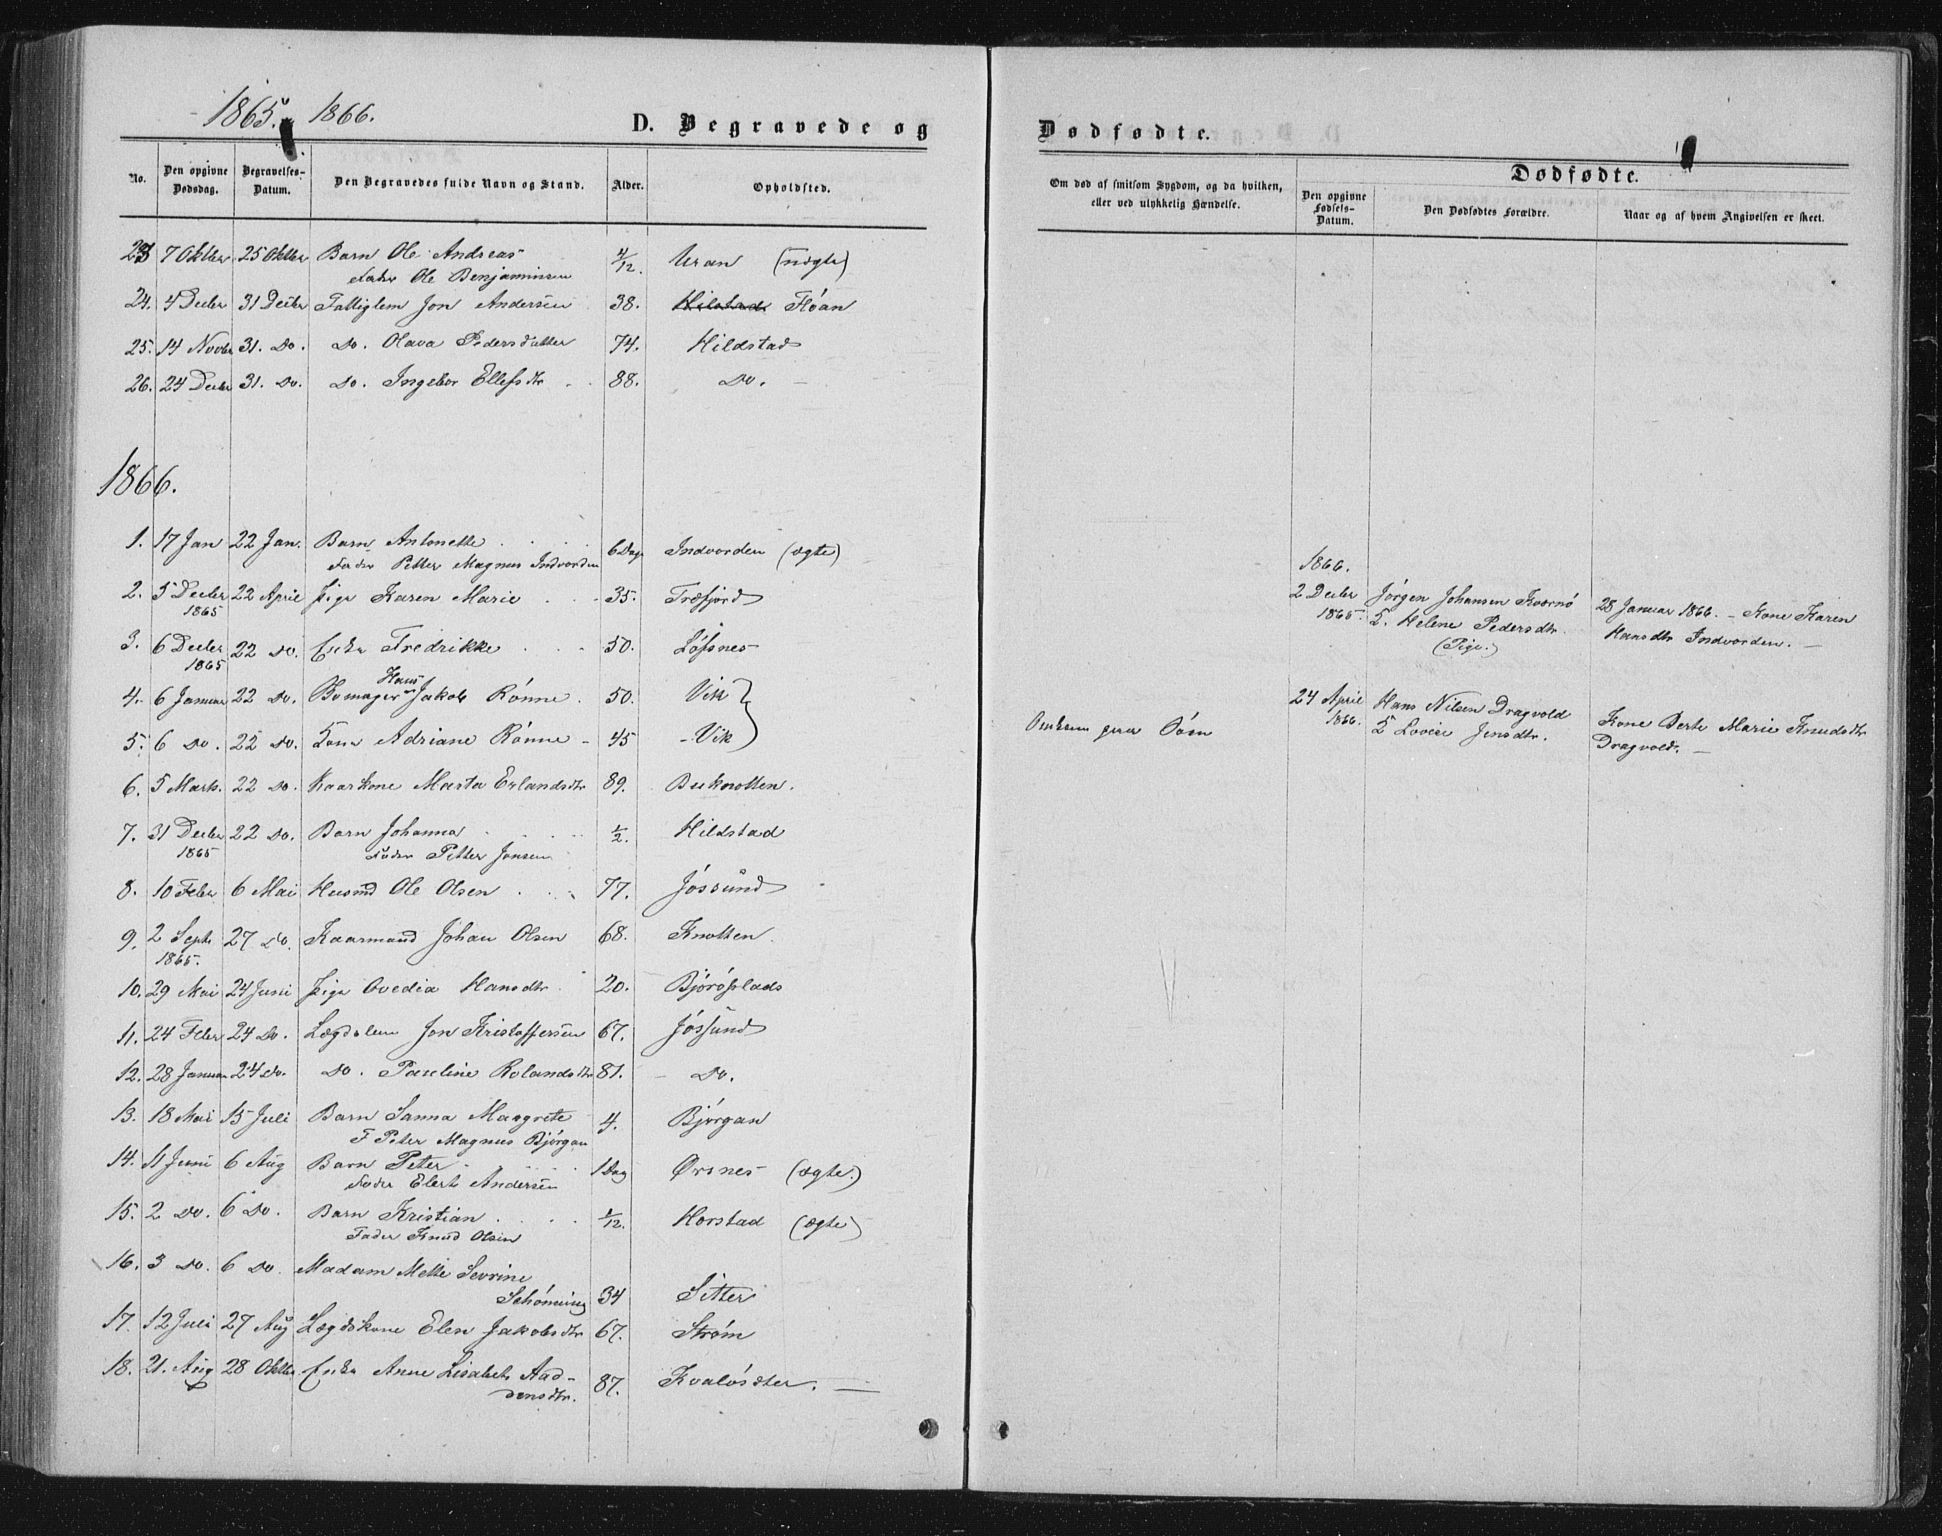 1865. 1866.
D. Begravede og
No. Den opgivne Dødsdag. Begravelses-Datum. Den Begravedes fulde Navn og Stand. Alder. Opholdsted.
23 7 Oktber 25 Oktber Barn Ole Andreas 4/12. Uran (uægte)
Fader Ole Benjaminsen
24. 4 Decber 31 Decber Fattiglem Jon Andersen 38. Hilstad Fløan
25. 14 Novbr 31. Do. Do. Olava Pedersdatter 74. Hildstad
26. 24 Decbr 31. Do. Do. Ingebor Ellefsdtr 88. Do.
1866.
1. 17 Jan 22 Jan. Barn Antonette 6 Dage Indvorden (ægte)
Fader Petter Magnus Indvorden
2. 5 Decber 22 April Pige Karen Marie 35. Træfjord
1865
3. 6 Decber 22 Do. Enke Fredrikke 50. Løfsnes
1865
Hans
4. 6 Januar 22 Do. Bomager Jakob Rønne 50. Vik
5. 6 Do. 22 Do. Kone Adriane Rønne 45 Vik
6. 5 Marts. 22 Do. Kaarkone Marta Erlandsdtr 89. Buknotten.
7. 31 Decber 22 Do. Barn Johanna 1/2. Hildstad
1865 Fader Petter Jonsen
8. 10 Feber 6 Mai Husmd Ole Olsen 77. Jøssund
9. 2 Sept 27 Do. Kaarmand Johan Olsen 68. Knotten.
1865.
10. 29 Mai 24 Juni Pige Ovedia Hansdtr 20. Bjørøplads
11. 24 Feber 24 Do. Lægdslem Jon Kristoffersen 67. Jøssund
12. 28 Januar 24 Do. Do. Pauline Rolandsdtr 81. Do.
13. 18 Mai 15 Juli Barn Sanna Maggrete 4. Bjørgan
F Peter Magnus Bjørgan
14. 11 Juni 6 Aug Barn Peter 1 Dag Ørsnes (ægte.)
Fader Elert Andersen
15. 2 Do. 6 Do. Barn Kristian 1/12. Horstad (ægte)
Fader Knud Olsen
16. 3 Do. 6 Do. Madam Mette Sevrine
Schønning 34 Sitter
17. 12 Juli 27 Aug Lægdskone Elen Jakobsdtr 67. Strøm
18. 21. Aug 28 Oktber Enke Anne Lisabet Aad-
densdtr. 87. Kvaløsæter.
Dødfødte.
Om død af smitsom Sygdom, og da hvilken, eller ved ulykkelig Hændelse.
Dødfødte.
Den opgivne Fødsels-Datum. Den Dødfødtes Forældre. Naar og af hvem Angivelsen er skeet.
1866.
2 Decber Jørgen Johansen Kvernø 28 Januar 1866. – Kone Karen
1865. K. Helene Pedersdtr. Hansdtr Indvorden. –
(Pige.)
24 April Hans Nilsen Dragvold Kone Berte Marie Knudsdtr
1866. K Lovise Jensdtr. Dragvold. –
Omkom paa Søen